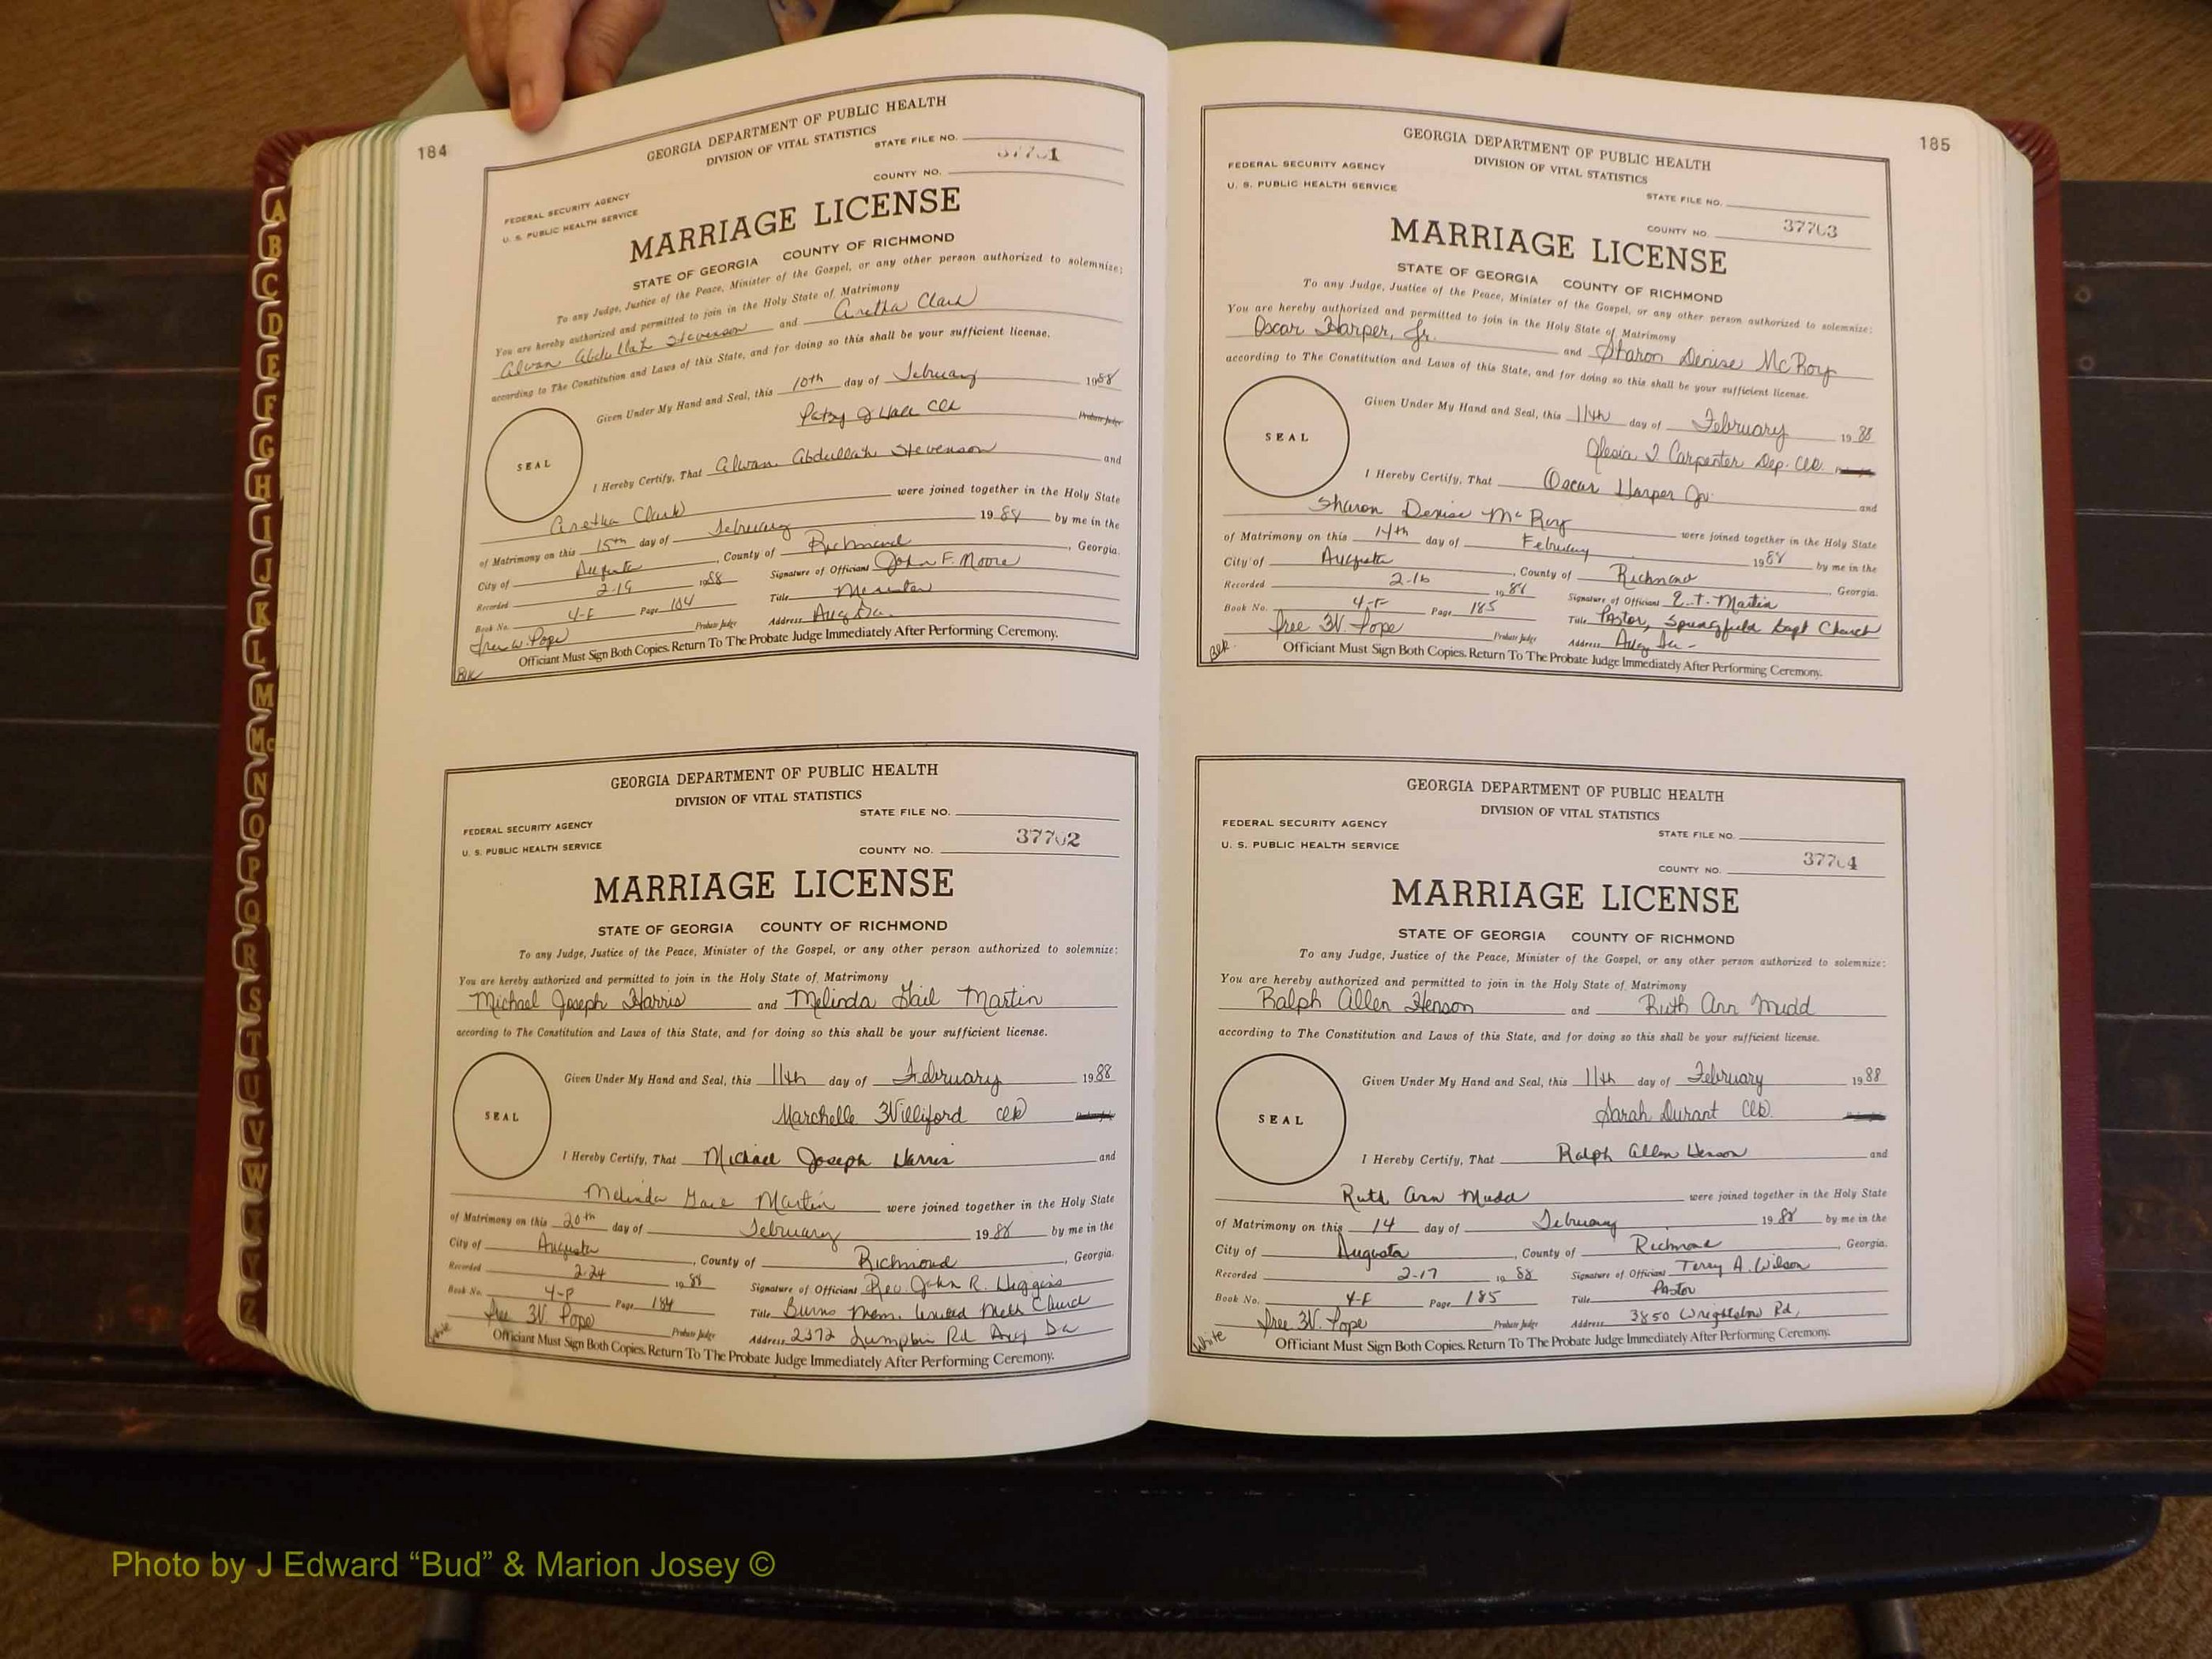 184
GEORGIA DEPARTMENT OF PUBLIC HEALTH
DIVISION OF VITAL STATISTICS
STATE FILE NO.
37701
COUNTY NO.
FEDERAL SECURITY AGENCY
U. S. PUBLIC HEALTH SERVICE
MARRIAGE LICENSE
STATE OF GEORGIA COUNTY OF RICHMOND
To any Judge, Justice of the Peace, Minister of the Gospel, or any other person authorized to solemnize:
You are hereby authorized and permitted to join in the Holy State of Matrimony
Alvan Abdullah Stevenson and Aretha Clark
according to The Constitution and Laws of this State, and for doing so this shall be your sufficient license.
Given Under My Hand and Seal, this 10th day of February 1988
Patsy J Hall Clk Probate Judge
SEAL
I Hereby Certify, That Alvan Abdullah Stevenson and
Aretha Clark were joined together in the Holy State
of Matrimony on this 15th day of February 1988 by me in the
City of Augusta, County of Richmond, Georgia.
Recorded 2-19 1988 Signature of Officiant John F. Moore
Book No. 4-F Page 184 Title Minister
Free W. Pope Probate Judge Address Aug Ga.
Officiant Must Sign Both Copies. Return To The Probate Judge Immediately After Performing Ceremony.
Blk
GEORGIA DEPARTMENT OF PUBLIC HEALTH
DIVISION OF VITAL STATISTICS
STATE FILE NO.
FEDERAL SECURITY AGENCY
37702
U. S. PUBLIC HEALTH SERVICE
COUNTY NO.
MARRIAGE LICENSE
STATE OF GEORGIA COUNTY OF RICHMOND
To any Judge, Justice of the Peace, Minister of the Gospel, or any other person authorized to solemnize:
You are hereby authorized and permitted to join in the Holy State of Matrimony
Michael Joseph Harris and Melinda Gail Martin
according to The Constitution and Laws of this State, and for doing so this shall be your sufficient license.
Given Under My Hand and Seal, this 11th day of February 1988
Marchelle Williford Clk
SEAL
I Hereby Certify, That Michael Joseph Harris and
Melinda Gail Martin were joined together in the Holy State
of Matrimony on this 20th day of February 1988 by me in the
City of Augusta, County of Richmond, Georgia.
Recorded 2-24 1988 Signature of Officiant Rev. John R. Higgins
Book No. 4-F Page 184 Title Burns Mem. United Meth Church
Free W. Pope Probate Judge Address 2372 Lumpkin Rd Aug Ga
White
Officiant Must Sign Both Copies. Return To The Probate Judge Immediately After Performing Ceremony.
185
GEORGIA DEPARTMENT OF PUBLIC HEALTH
DIVISION OF VITAL STATISTICS
FEDERAL SECURITY AGENCY
U. S. PUBLIC HEALTH SERVICE
STATE FILE NO.
37703
COUNTY NO.
MARRIAGE LICENSE
STATE OF GEORGIA COUNTY OF RICHMOND
To any Judge, Justice of the Peace, Minister of the Gospel, or any other person authorized to solemnize:
You are hereby authorized and permitted to join in the Holy State of Matrimony
Oscar Harper, Jr. and Sharon Denise McRoy
according to The Constitution and Laws of this State, and for doing so this shall be your sufficient license.
Given Under My Hand and Seal, this 11th day of February 1988
Carpenter Dep. Clk.
SEAL
I Hereby Certify, That Oscar Harper Jr. and
Sharon Denise McRoy were joined together in the Holy State
of Matrimony on this 14th day of February 1988 by me in the
City of Augusta, County of Richmond Georgia.
Recorded 2-16 1988 Signature of Officiant E. T. Martin
Book No. 4-F Page 185 Title Pastor, Springfield Bapt Church
Free W. Pope Probate Judge Address Aug Ga -
Blk.
Officiant Must Sign Both Copies. Return To The Probate Judge Immediately After Performing Ceremony.
GEORGIA DEPARTMENT OF PUBLIC HEALTH
DIVISION OF VITAL STATISTICS
FEDERAL SECURITY AGENCY
STATE FILE NO.
U. S. PUBLIC HEALTH SERVICE
37704
COUNTY NO.
MARRIAGE LICENSE
STATE OF GEORGIA COUNTY OF RICHMOND
To any Judge, Justice of the Peace, Minister of the Gospel, or any other person authorized to solemnize:
You are hereby authorized and permitted to join in the Holy State of Matrimony
Ralph Allen Henson and Ruth Ann Mudd
according to The Constitution and Laws of this State, and for doing so this shall be your sufficient license.
Given Under My Hand and Seal, this 11th day of February 1988
Sarah Durant Clk.
SEAL
I Hereby Certify, That Ralph Allen Henson and
Ruth Ann Mudd were joined together in the Holy State
of Matrimony on this 14 day of February 1988 by me in the
City of Augusta, County of Richmond, Georgia.
Recorded 2-17 1988 Signature of Officiant Terry A. Wilson
Book No. 4-F Page 185 Title Pastor
Free W. Pope Probate Judge Address 3850 Wrightsboro Rd,
White
Officiant Must Sign Both Copies. Return To The Probate Judge Immediately After Performing Ceremony.
A
B
C
D
E
F
G
H
I
J
K
L
M
Mc
N
O
P
Q
R
S
T
U
V
W
X
Y
Z
Photo by J Edward “Bud” & Marion Josey ©